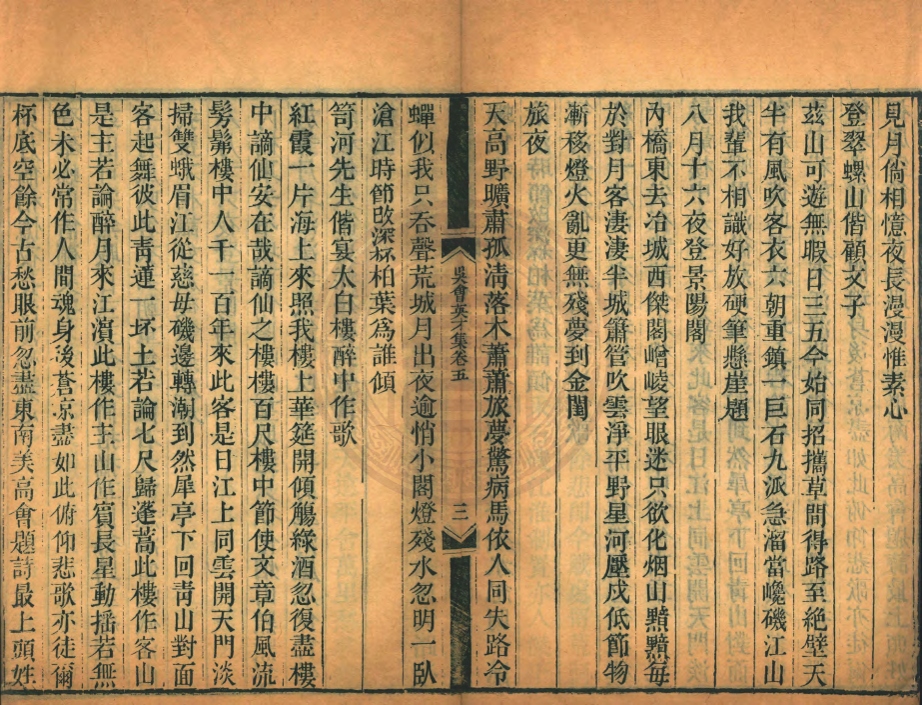 見月倘相憶夜長漫漫惟素心
登翠螺山偕顧文子
茲山可遊無暇日三五今始同招攜草間得路至絶壁天
半有風吹客衣六朝重鎮一巨石九派急溜當巉磯江山
我輩不相識好放硬筆懸崖題
八月十六夜登景陽閣
內橋東去冶城西傑閣嶒崚望眼迷只欲化烟山黯黯每
於對月客淒淒半城簫管吹雲淨平野星河壓戍低節物
漸移燈火亂更無殘夢到金閨
旅夜
天高野曠肅孤清落木蕭蕭旅夢驚病馬依人同失路冷
吳會英才集卷五
三
蟬似我只吞聲荒城月出夜逾悄小閣燈殘水忽明一臥
滄江時節改深森柏葉爲誰傾
笥河先生偕宴太白樓醉中作歌
紅霞一片海上來照我樓上華筵開傾觴綠酒忽復盡樓
中謫仙安在哉謫仙之樓樓百尺樓中節使文章伯風流
髣髴樓中人千一百年來此客是日江上同雲開天門淡
掃雙蛾眉江從慈母磯邊轉潮到然犀亭下回靑山對面
客起舞彼此靑蓮一坏土若論七尺歸蓬蒿此樓作客山
是主若論醉月來江濱此樓作主山作賓長星動搖若無
色未必常作人間魂身後蒼凉盡如此俯仰悲歌亦徒爾
杯底空餘今古愁眼前忽盡東南美高會題詩最上頭姓